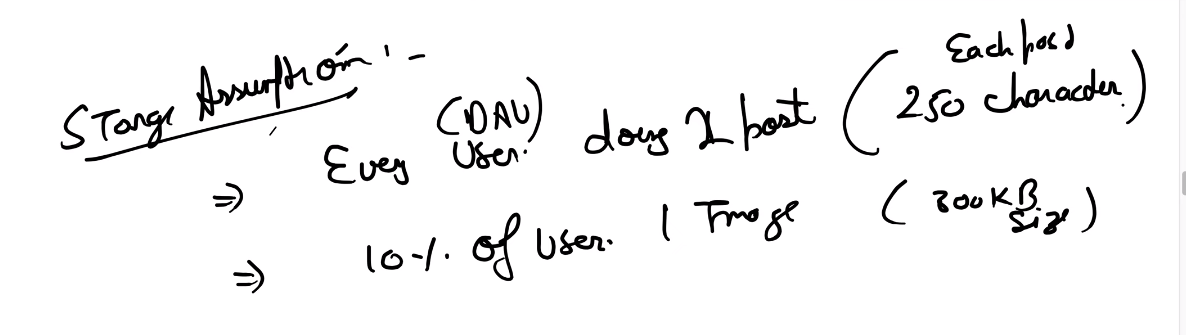 Storage Assumption :-
⇒ Every (DAU) User. doing 2 post (Each post 250 character.)
⇒ 10% of User. 1 Image (300KB Size)